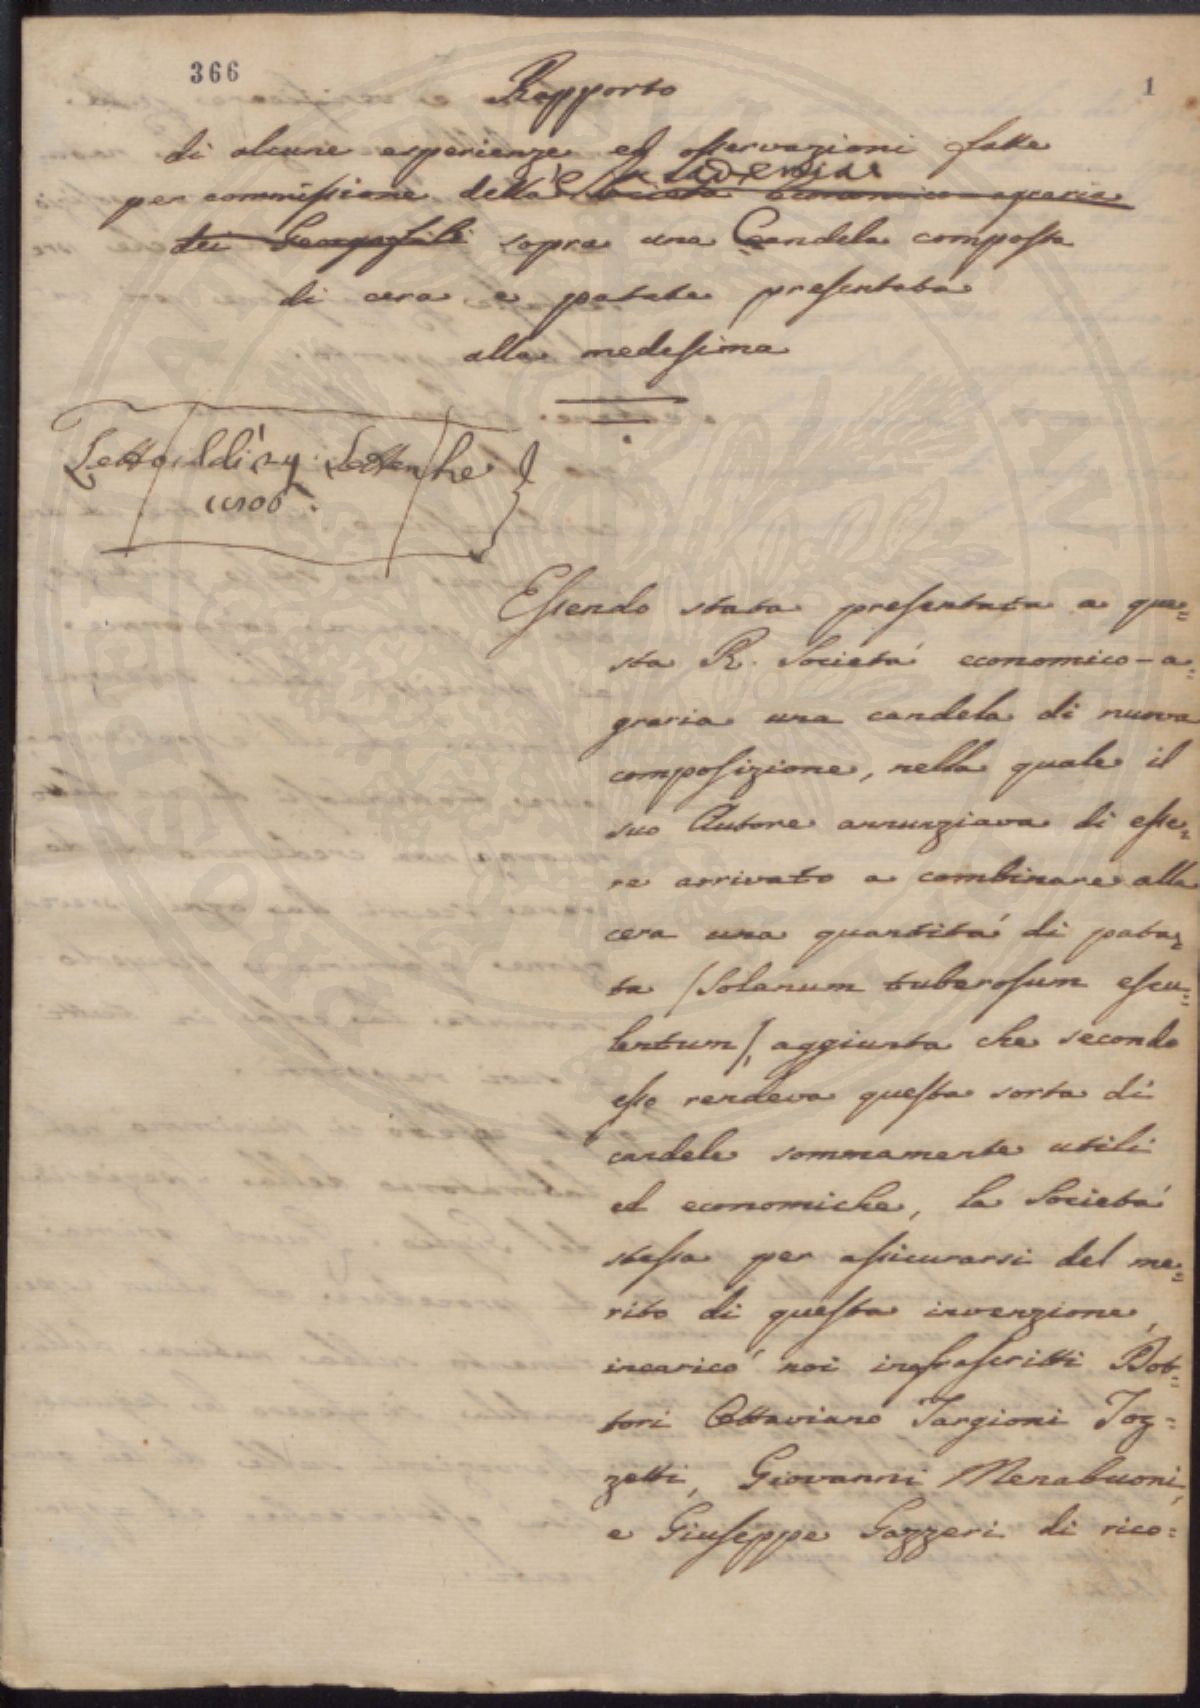 366
1
Rapporto
di alcune esperienze ed osservazioni fatte
Accademia
per commissione della Società Economico-agraria
dei Georgofili sopra una Candela composta
di cera e patate presentata
alla medesima
Letto il dì 24 Settembre
1806.
Essendo stata presentata a que=
sta R. Società economico-a=
graria una candela di nuova
composizione, nella quale il
suo Autore annunziava di esse=
re arrivato a combinare alla
cera una quantità di pata=
ta /Solanum tuberosum escu=
lentum/, aggiunta che secondo
esso rendeva questa sorta di
candele sommamente utili
ed economiche, la Società
stessa per assicurarsi del me=
rito di questa invenzione,
incaricò noi infrascritti Dot=
tori Ottaviano Targioni Toz=
zetti, Giovanni Menabuoni,
e Giuseppe Gazzeri di rico=